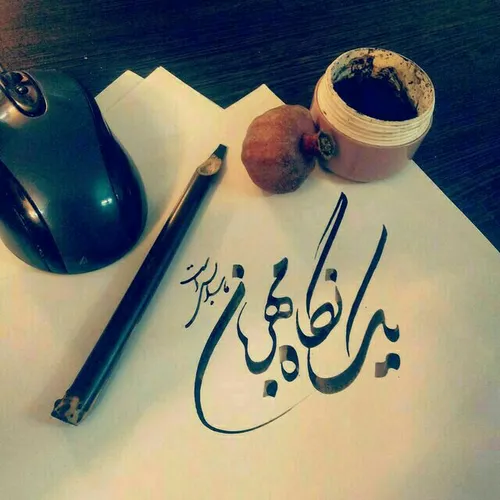 یک نگاه مهربان
ما را بس است